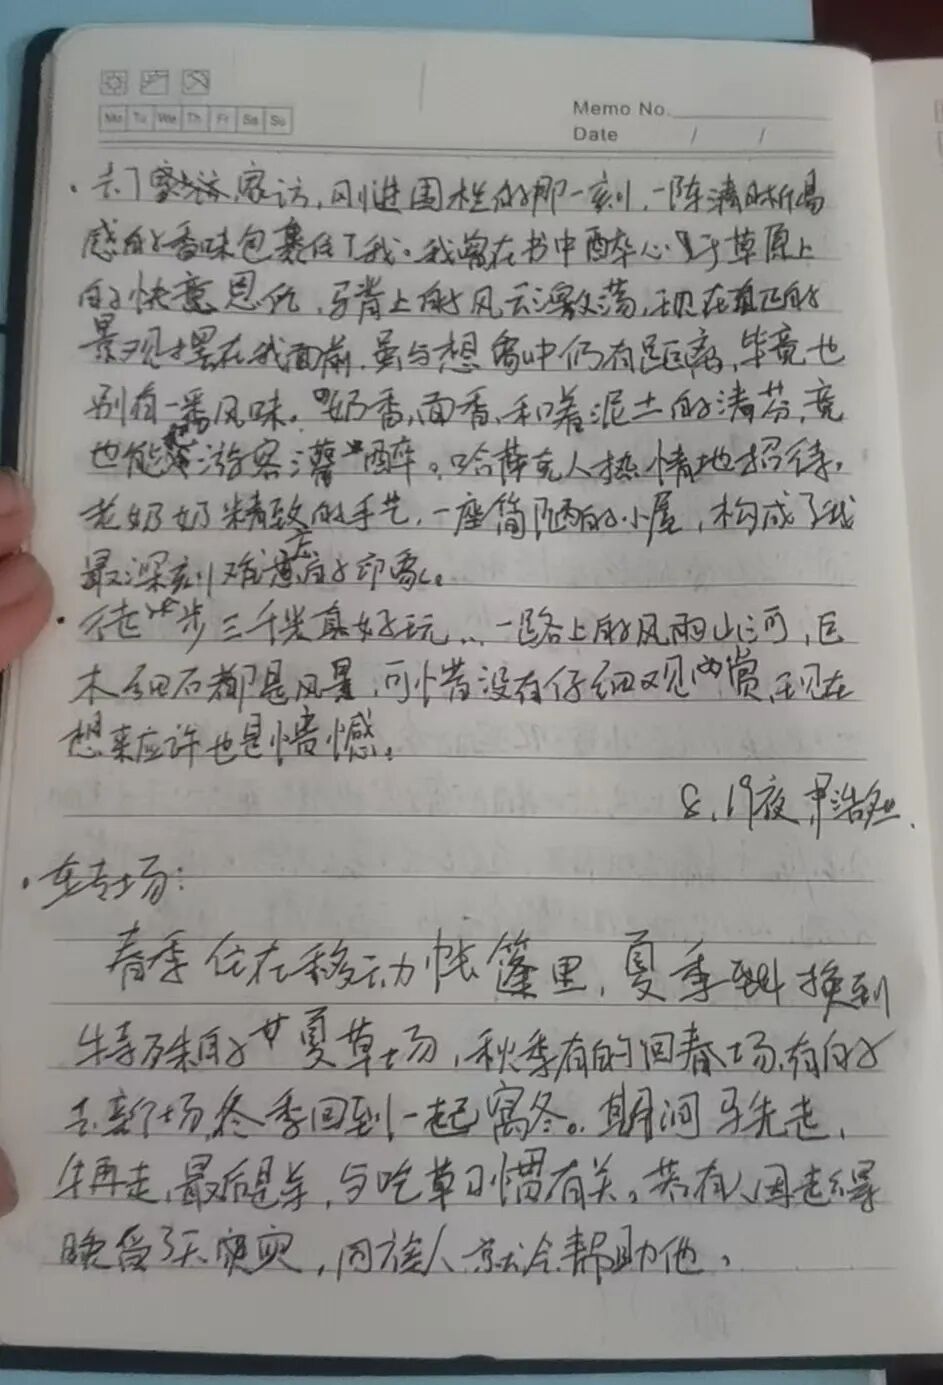 Mo Tu We Th Fr Sa Su
Memo No.
Date / /
·去了家访,刚进围栏的那一刻,一阵清晰易
感的香味包裹住了我。我曾在书中醉心于草原上
的快意恩仇,马背上的风云激荡,现在真正的
景观摆在我面前,虽与想象中仍有距离,毕竟也
别有一番风味。奶香,面香,和着泥土的清芬,竟
也能把游客灌醉。哈萨克人热情地招待,
老奶奶精致的手艺,一座简陋的小屋,构成了我
最深刻难忘的印象。
·徒步三千米真好玩...一路上的风雨山河,巨
木细石都是风景,可惜没有仔细观赏,现在
想来应许也是憾。
8.19夜
·转场:
春季住在移动帐篷里,夏季到换到
特殊的夏草场,秋季有的回春场,有的
去新场,冬季回到一起窝冬。期间马先走,
牛再走,最后是羊,与吃草习惯有关。若有人因走得
晚受了天灾,同族人就会帮助他。